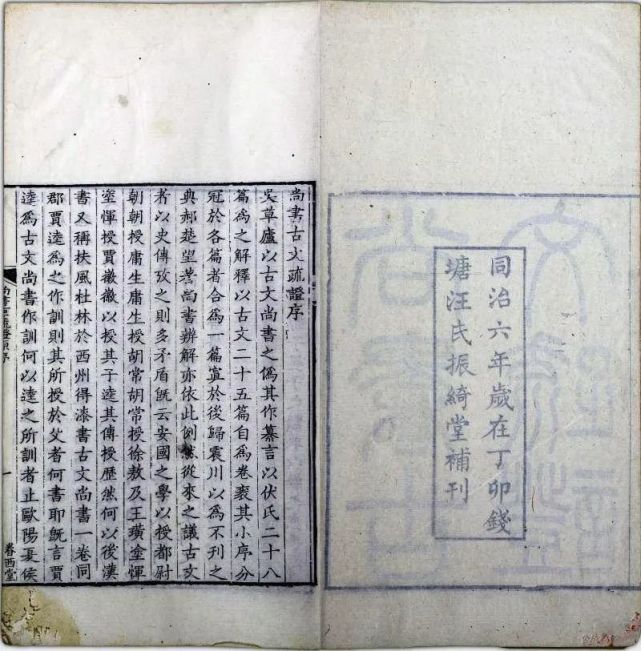 同治六年歲在丁卯錢
塘汪氏振綺堂補刊
尚書古文疏證序
吳草廬以古文尚書之僞其作纂言以伏氏二十八
篇爲之解釋以古文二十五篇自爲卷袠其小序分
冠於各篇者合爲一篇寘於後歸震川以爲不刊之
典郝楚望著尚書辨解亦依此例然從來之議古文
者以史傳攷之則多矛盾旣云安國之學以授都尉
朝朝授庸生庸生授胡常胡常授徐敖及王璜塗惲
塗惲授賈徽徽以授其子逵其傳授歷然何以後漢
書又稱扶風杜林於西州得漆書古文尚書一卷同
郡賈逵爲之作訓則其所授於父者何書耶旣言賈
逵爲古文尚書作訓何以逵之所訓者止歐陽夏侯
一
眷西堂